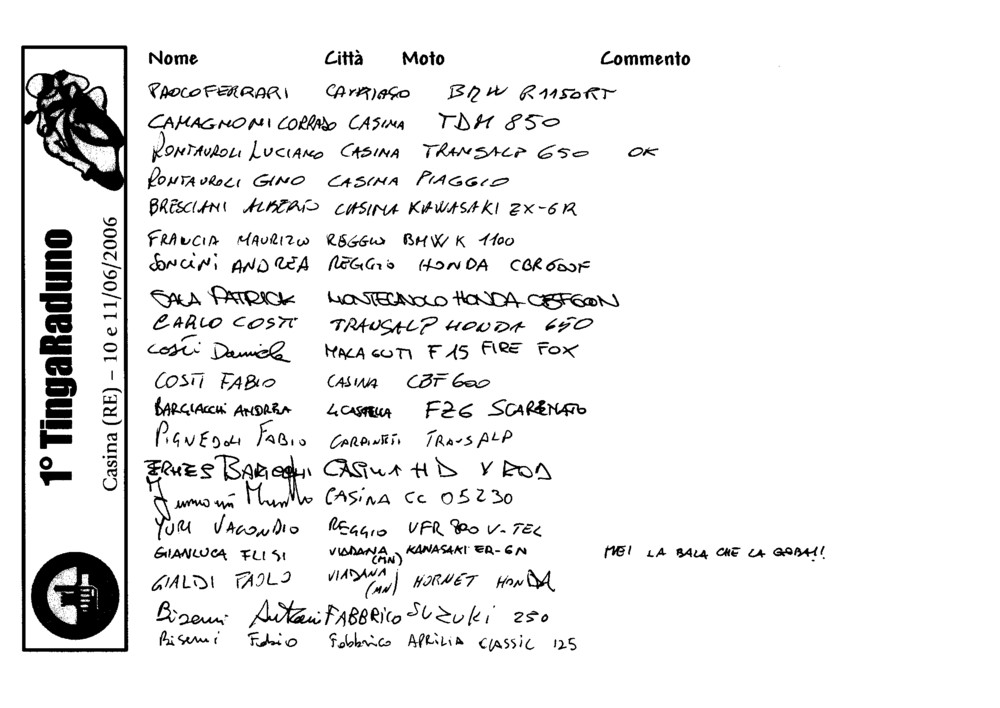 Nome Città Moto Commento
PAOLO FERRARI CAVRIAGO BMW R1150RT
CAMAGNONI CORRADO CASINA TDM 850
RONTAUROLI LUCIANO CASINA TRANSALP 650 OK
RONTAUROLI GINO CASINA PIAGGIO
BRESCIANI ALBERTO CASINA KAWASAKI ZX-6R
FRANCIA MAURIZIO REGGIO BMW K 1100
SONCINI ANDREA REGGIO HONDA CBR600F
SALA PATRICK MONTECAVOLO HONDA CBF600N
CARLO COSTI TRANSALP HONDA 650
COSTI Daniele MALAGUTI F 15 FIRE FOX
COSTI FABIO CASINA CBF 600
BARGIACCHI ANDREA FZ6 SCARENATO
PIGNEDOLI FABIO CARPINETI TRANSALP
ERMES CASINA HD V ROD
CASINA CC 05230
YURI VAGONDIO REGGIO VFR 800 V-TEC
GIANLUCA FLISI VIADANA (MN) KAWASAKI ER-6N MEI LA BALA CHE LA GOBA!!
GIALDI PAOLO VIADANA (MN) HORNET HONDA
Bizerni Antoni FABBRICO SUZUKI 250
Biserni Fabio Fabbrico APRILIA CLASSIC 125
1° TingaRaduno
Casina (RE) – 10 e 11/06/2006